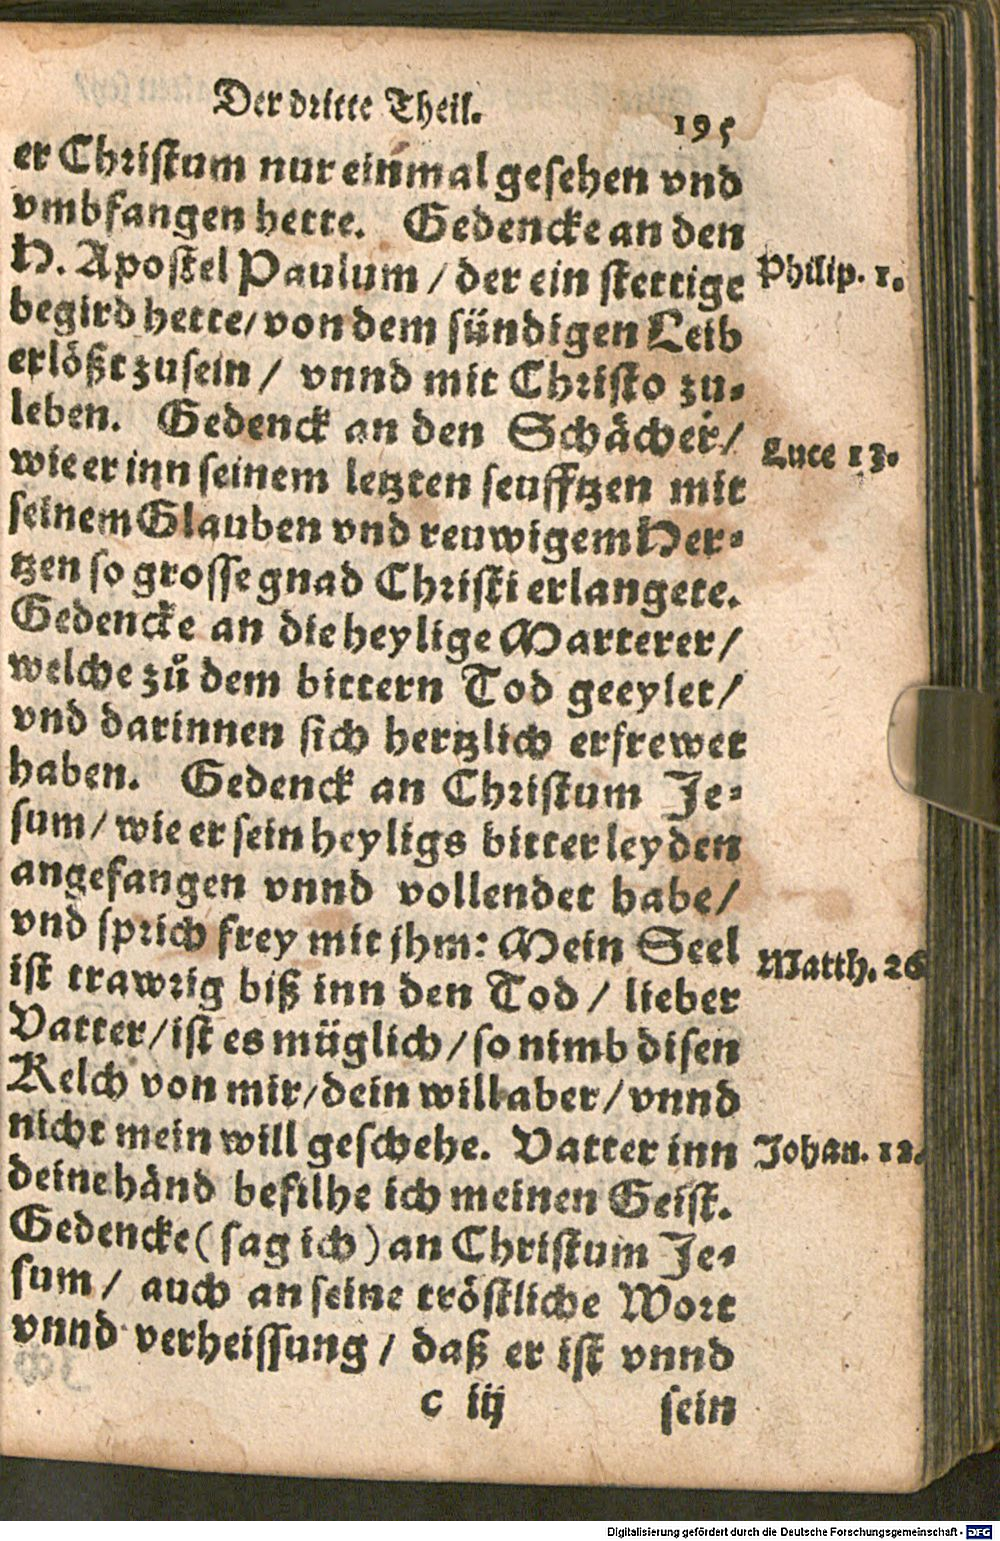 Der dritte Theil.
195
er Christum nur einmal gesehen vnd
vmbfangen hette. Gedencke an den
H. Apostel Paulum / der ein stettige
Philip. 1.
begird hette/ von dem sündigen Leib
erlößt zusein / vnnd mit Christo zu-
leben. Gedenck an den Schächer/
Luce 13.
wie er inn seinem letzten seufftzen mit
seinem Glauben vnd reuwigem Her-
tzen so grosse gnad Christi erlangete.
Gedencke an die heylige Marterer/
welche zů dem bittern Tod geeylet/
vnd darinnen sich hertzlich erfrewet
haben. Gedenck an Christum Je-
sum/ wie er sein heyligs bitter leyden
angefangen vnnd vollendet habe/
vnd sprich frey mit jhm: Mein Seel
Matth. 26
ist trawrig biß inn den Tod / lieber
Vatter/ ist es müglich/ so nimb disen
Kelch von mir/ dein will aber/ vnnd
nicht mein will geschehe. Vatter inn
Johan. 12.
deine händ befilhe ich meinen Geist.
Gedencke (sag ich) an Christum Je-
sum/ auch an seine tröstliche Wort
vnnd verheissung / daß er ist vnnd
c iij
sein
Digitalisierung gefördert durch die Deutsche Forschungsgemeinschaft - DFG